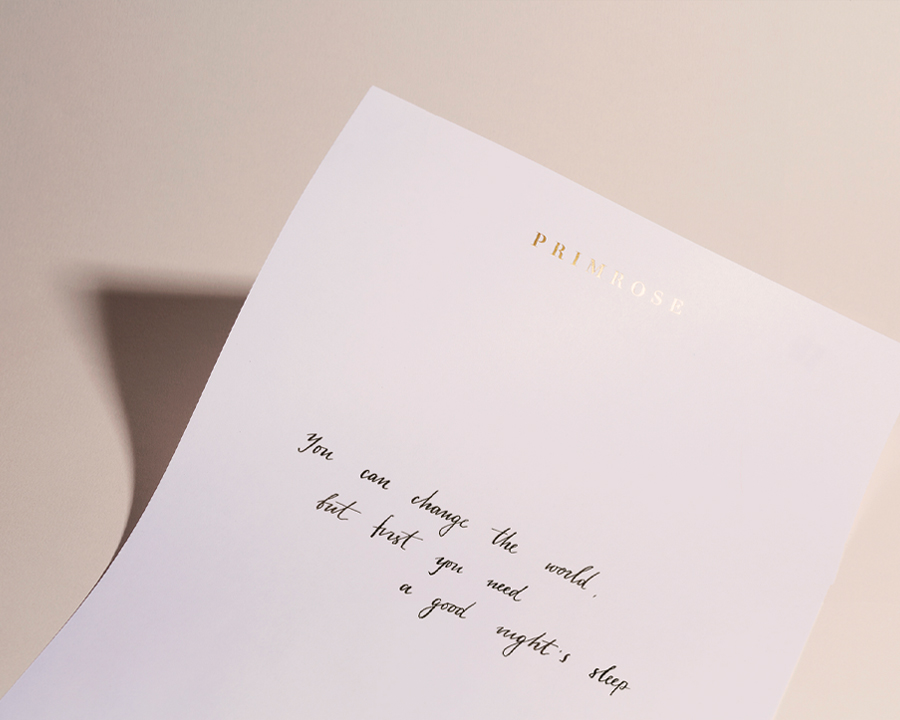 PRIMROSE
You can change the world,
but first you need
a good night's sleep